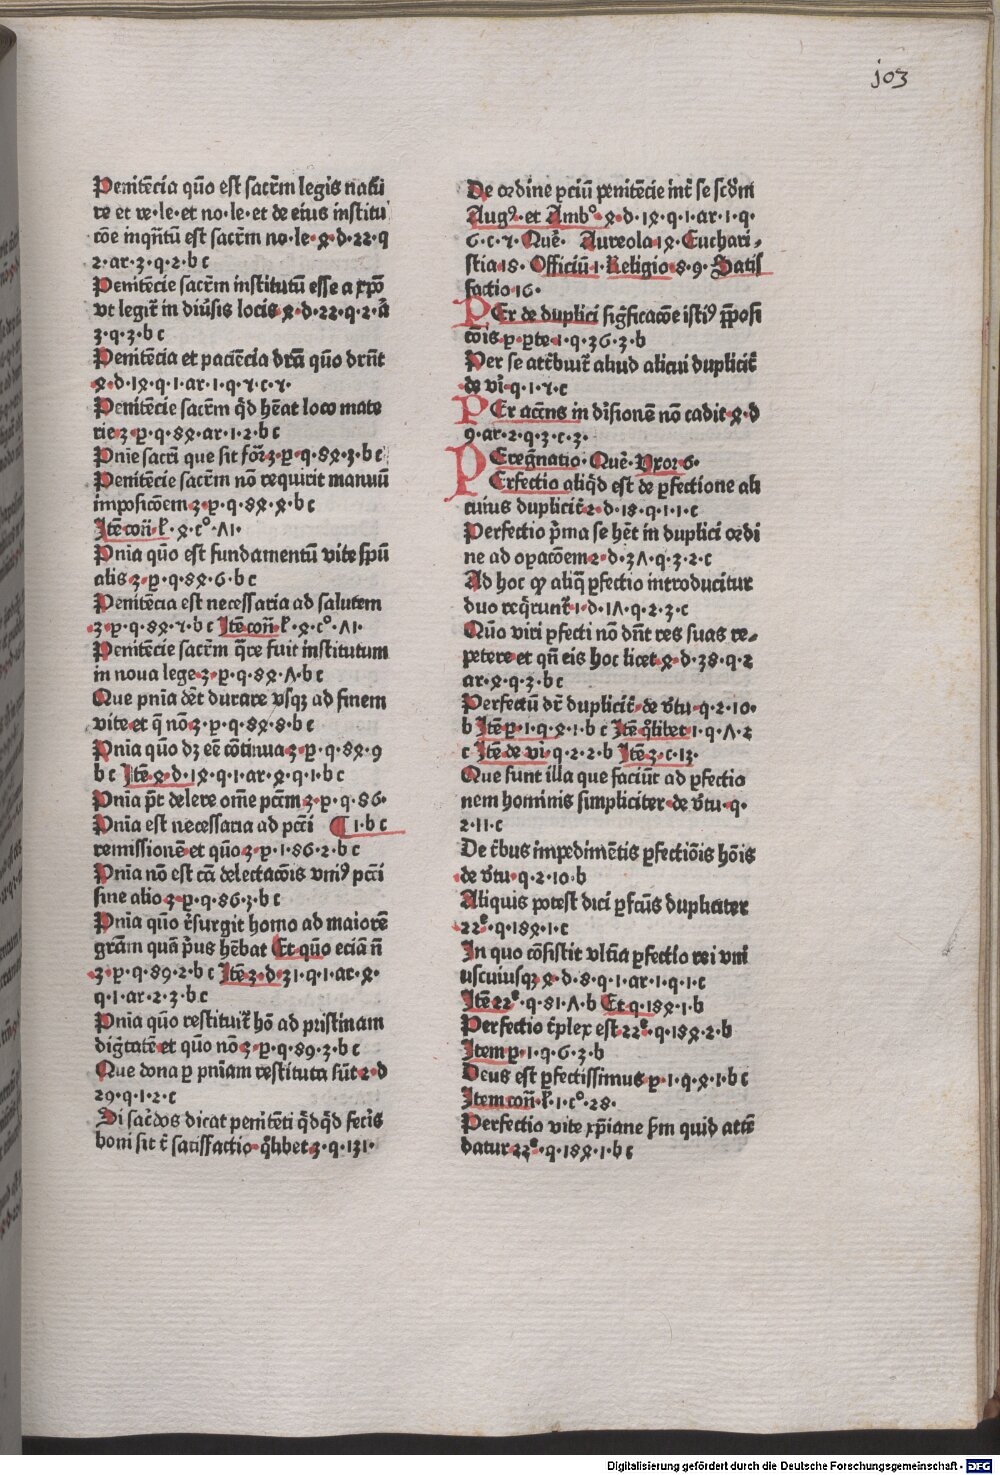 j03
Penitēcia quō est sacrm̄ legis natu
re et ve·le·et no·le·et de eius institu
cōe inqn̄tū est sacrm̄ no·le·ꝝ·d·22·q
2·ar·3·q·2·b c
Penitēcie sacrm̄ institutū esse a xp̄o
vt legit̄ in diūsis locis ꝝ·d·22·q·2·a
3·q·3·b c
Penitēcia et paciēcia dr̄n̄ quō drn̄t
ꝝ·d·1ꝝ·q·1·ar·1·q·ʌ·c·ʌ·
Penitēcie sacrm̄ qd̄ hēat loco mate
rie 3·p·q·8ꝝ·ar·1·2·b c
Pn̄ie sacrī que sit for̄ 3·p·q·8ꝝ·3·b c
Penitēcie sacrm̄ nō requirit manuū
imposicōem 3·p·q·8ꝝ·ꝝ·b c
Itē con̄ l̄·ꝝ·c°·ʌ1·
Pn̄ia quō est fundamentū vite spū
alis 3·p·q·8ꝝ·6·b c
Penitēcia est necessaria ad salutem
3·p·q·8ꝝ·ʌ·b c Itē con̄ l̄·ꝝ·c°·ʌ1·
Penitēcie sacrm̄ qr̄e fuit institutum
in noua lege 3·p·q·8ꝝ·ʌ·b c
Que pn̄ia dēt durare vsqꝫ ad finem
vite et q̄ nō 3·p·q·8ꝝ·8·b c
Pn̄ia quō dꝫ eē cōtinua 3·p·q·8ꝝ·9
b c Itē ꝝ·d·1ꝝ·q·1·ar·ꝝ·q·1·b c
Pn̄ia pt̄ delere om̄e pctm̄ 3·p·q·86·
Pn̄ia est necessaria ad pctī ¶ 1·b c
remissionē et quō 3·p·1·86·2·b c
Pn̄ia nō est cā delectacōis vniꝰ pctī
sine alio 3·p·q·86·3·b c
Pn̄ia quō r̄surgit homo ad maiorē
grām quā pr̄us hēbat Et quō eciā n̄
3·p·q·89·2·b c Itē 3·d·31·q·1·ar·ꝝ·
q·1·ar·2·3·b c
Pn̄ia quō restituit̄ hō ad pristinam
dignitatē et quō nō 3·p·q·89·3·b c
Que dona p pn̄iam restituta sūt 2·d
29·q·1·2·c
Si sac̄dos dicat penitēti qd̄qd̄ fecis̄
boni sit t̄ satisfactio qlībet 3·q·131·
De ordine pciū penitēcie int̄ se scd̄m
Augꝰ·et Amb°·ꝝ·d·1ꝝ·q·1·ar·1·q·
6·c·ʌ·Quē· Aureola 1ꝝ·Euchari⸗
stia 18·Officiū 1·Religio 8·9·Satis
factio 16·
PEr de duplici significacōe istiꝰ p̄posi
cōis p·pte·1·q·36·3·b
Per se attribuit̄ aliud alicui duplicit̄
de vī·q·1·ʌ·c
PEr accn̄s in diuisionē nō cadit ꝝ·d
9·ar·2·q·3·c·3·
PEregnatio·Quē·Vxor 6·
PErfectio aliqd̄ est de pfectione ali
cuius duplicit̄ 2·d·18·q·1·1·c
Perfectio pr̄ma se hēt in duplici ordi
ne ad opacōem 2·d·3ʌ·q·3·2·c
Ad hoc qꝙ aliq̄ pfectio introducitur
duo reqrunt̄ 1·d·1ʌ·q·2·3·c
Quō viri pfecti nō dn̄t res suas re⸗
petere et qn̄ eis hoc licet ꝝ·d·38·q·2
ar·ꝝ·q·3·b c
Perfectū dr̄ duplicit̄·de v̄tu·q·2·10·
b Itē p·1·q·ꝝ·1·b c Itē qlībet 1·q·ʌ·2
c Itē de vī·q·2·2·b Itē 3·c·13·
Que sunt illa que faciūt ad pfectio
nem hominis simpliciter·de v̄tu·q·
2·11·c
De tr̄bus impedimētis pfectiōis hōis
de v̄tu·q·2·10·b
Aliquis potest dici pfcūs dupliciter
22ᵉ·q·18ꝝ·1·c
In quo cōsistit vltīa pfectio rei vni
uscuiusqꝫ ꝝ·d·8·q·1·ar·1·q·1·c
Itē 22ᵉ·q·81·ʌ·b Et q·18ꝝ·1·b
Perfectio tr̄plex est 22ᵉ·q·18ꝝ·2·b
Item p·1·q·6·3·b
Deus est pfectissimus p·1·q·ꝝ·1·b c
Item con̄·l̄·1·c°·28·
Perfectio vite xp̄iane ꝑm quid attē
datur 22ᵉ·q·18ꝝ·1·b c
Digitalisierung gefördert durch die Deutsche Forschungsgemeinschaft - DFG